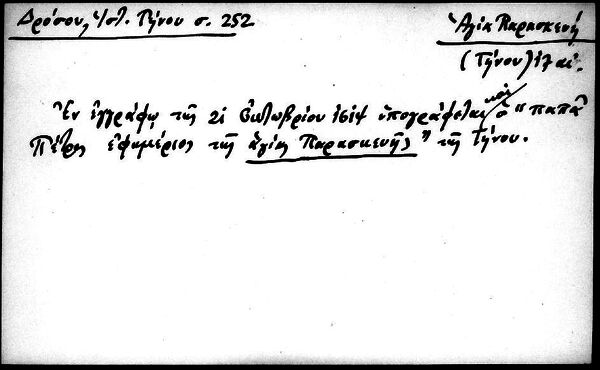 Δρόσου, Ἱστ. Τήνου σ. 252
Ἁγία Παρασκευή
(Τήνου) 17 αἰ.
Ἐν ἐγγράφῳ τῆς 21 Ὀκτωβρίου 1614 ὑπογράφεται καὶ ὁ "παπᾶ
Πέτρος ἐφημέριος τῆς ἁγίας Παρασκευῆς" τῆς Τήνου.